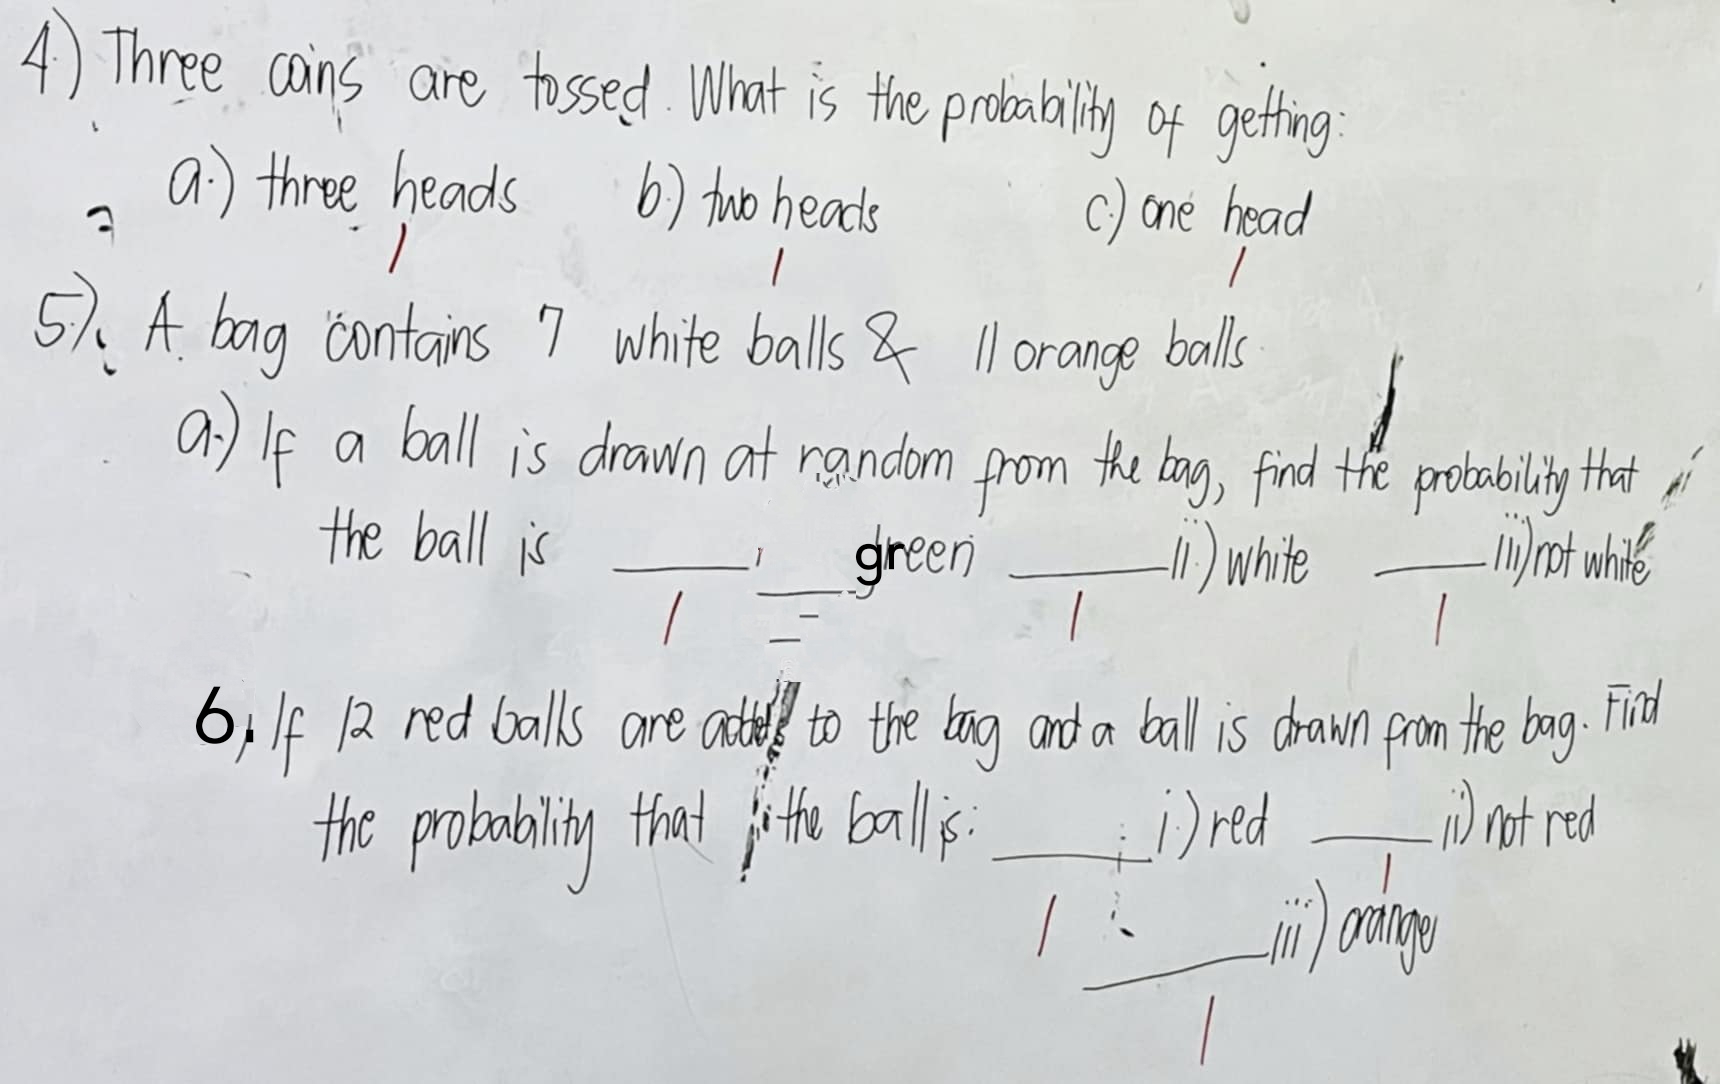 4.) Three coins are tossed. What is the probability of getting:
a.) three heads b.) two heads c.) one head
5.) A bag contains 7 white balls & 11 orange balls
a.) If a ball is drawn at random from the bag, find the probability that
the ball is ____ green ____ ii.) white ____ iii) not white
6. If 12 red balls are added to the bag and a ball is drawn from the bag. Find
the probability that the ball is: ____ i.) red ____ ii) not red
____ iii) orange